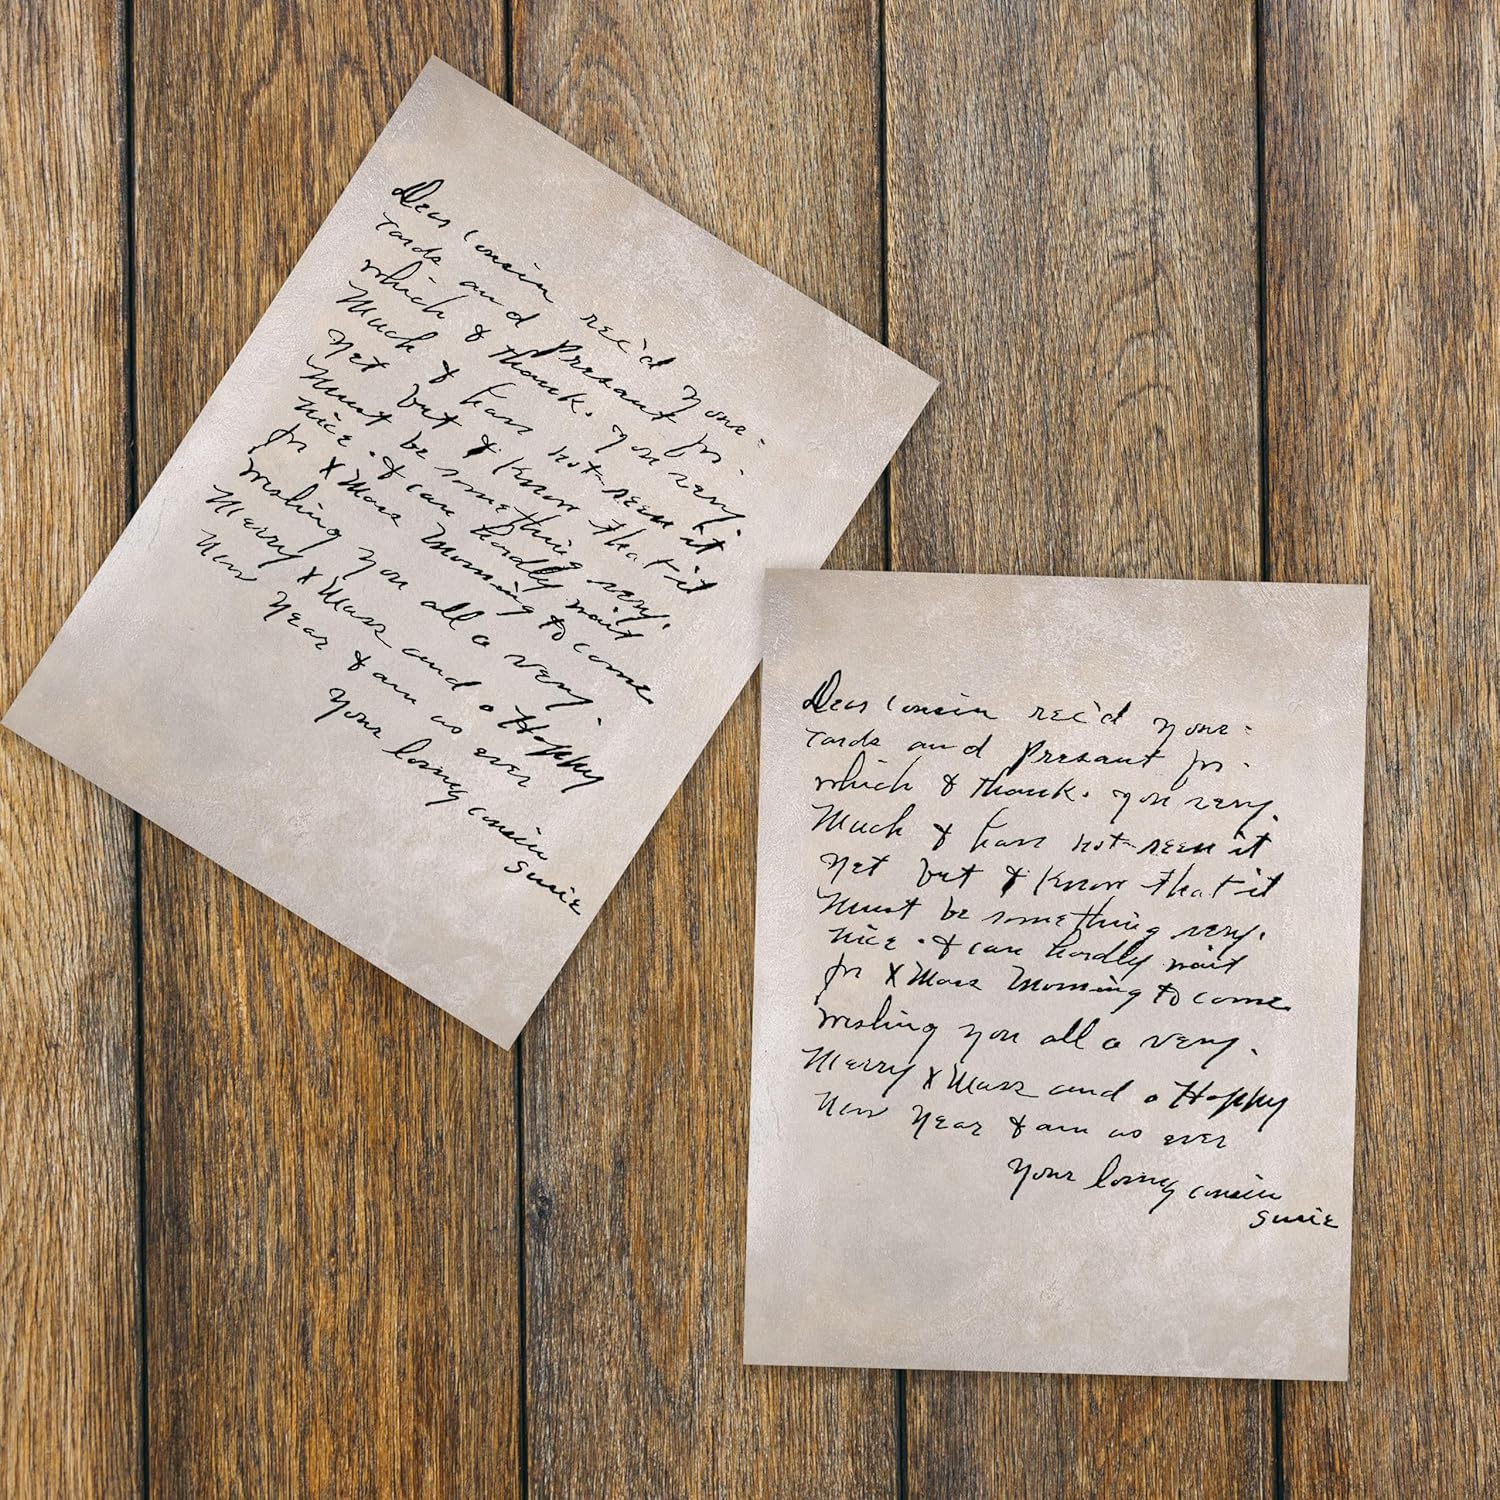 Dear Cousin rec'd your
Cards and Presant for
which I thank. you very.
Much I have not seen it
yet but I know that it
Must be something very.
nice. I can hardly wait
for XMass Morning to come
wishing you all a very.
Merry XMass and a Happy
New Year I am as ever
Your loving cousin
Susie
Dear Cousin rec'd your
Cards and Presant for
which I thank. you very.
Much I have not seen it
yet but I know that it
Must be something very.
nice. I can hardly wait
for XMass Morning to come
wishing you all a very.
Merry XMass and a Happy
New Year I am as ever
Your loving cousin
Susie